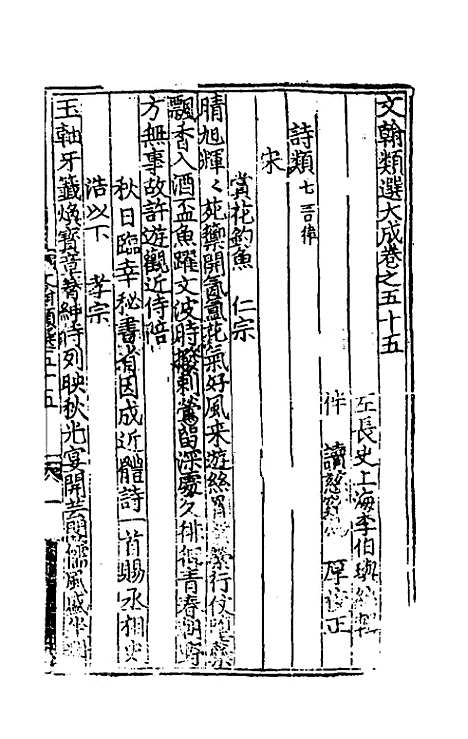 文翰類選大成卷之五十五
左長史上海李伯璵編輯
伴讀慈谿馮厚校正
詩類 七言律
宋
賞花釣魚 仁宗
晴旭輝〻苑籞開氤氳花氣好風来遊絲罥絮縈行仗墮蘂
飄香入酒盃魚躍文波時撥剌鶯留深處久徘徊青春朝野
方無事故許遊觀近侍陪
秋日臨幸秘書省因成近體詩一首賜丞相史
浩以下 孝宗
玉軸牙籤煥寶章簪紳侍列映秋光宴開芸閣儒風盛坐
文翰類選五十五